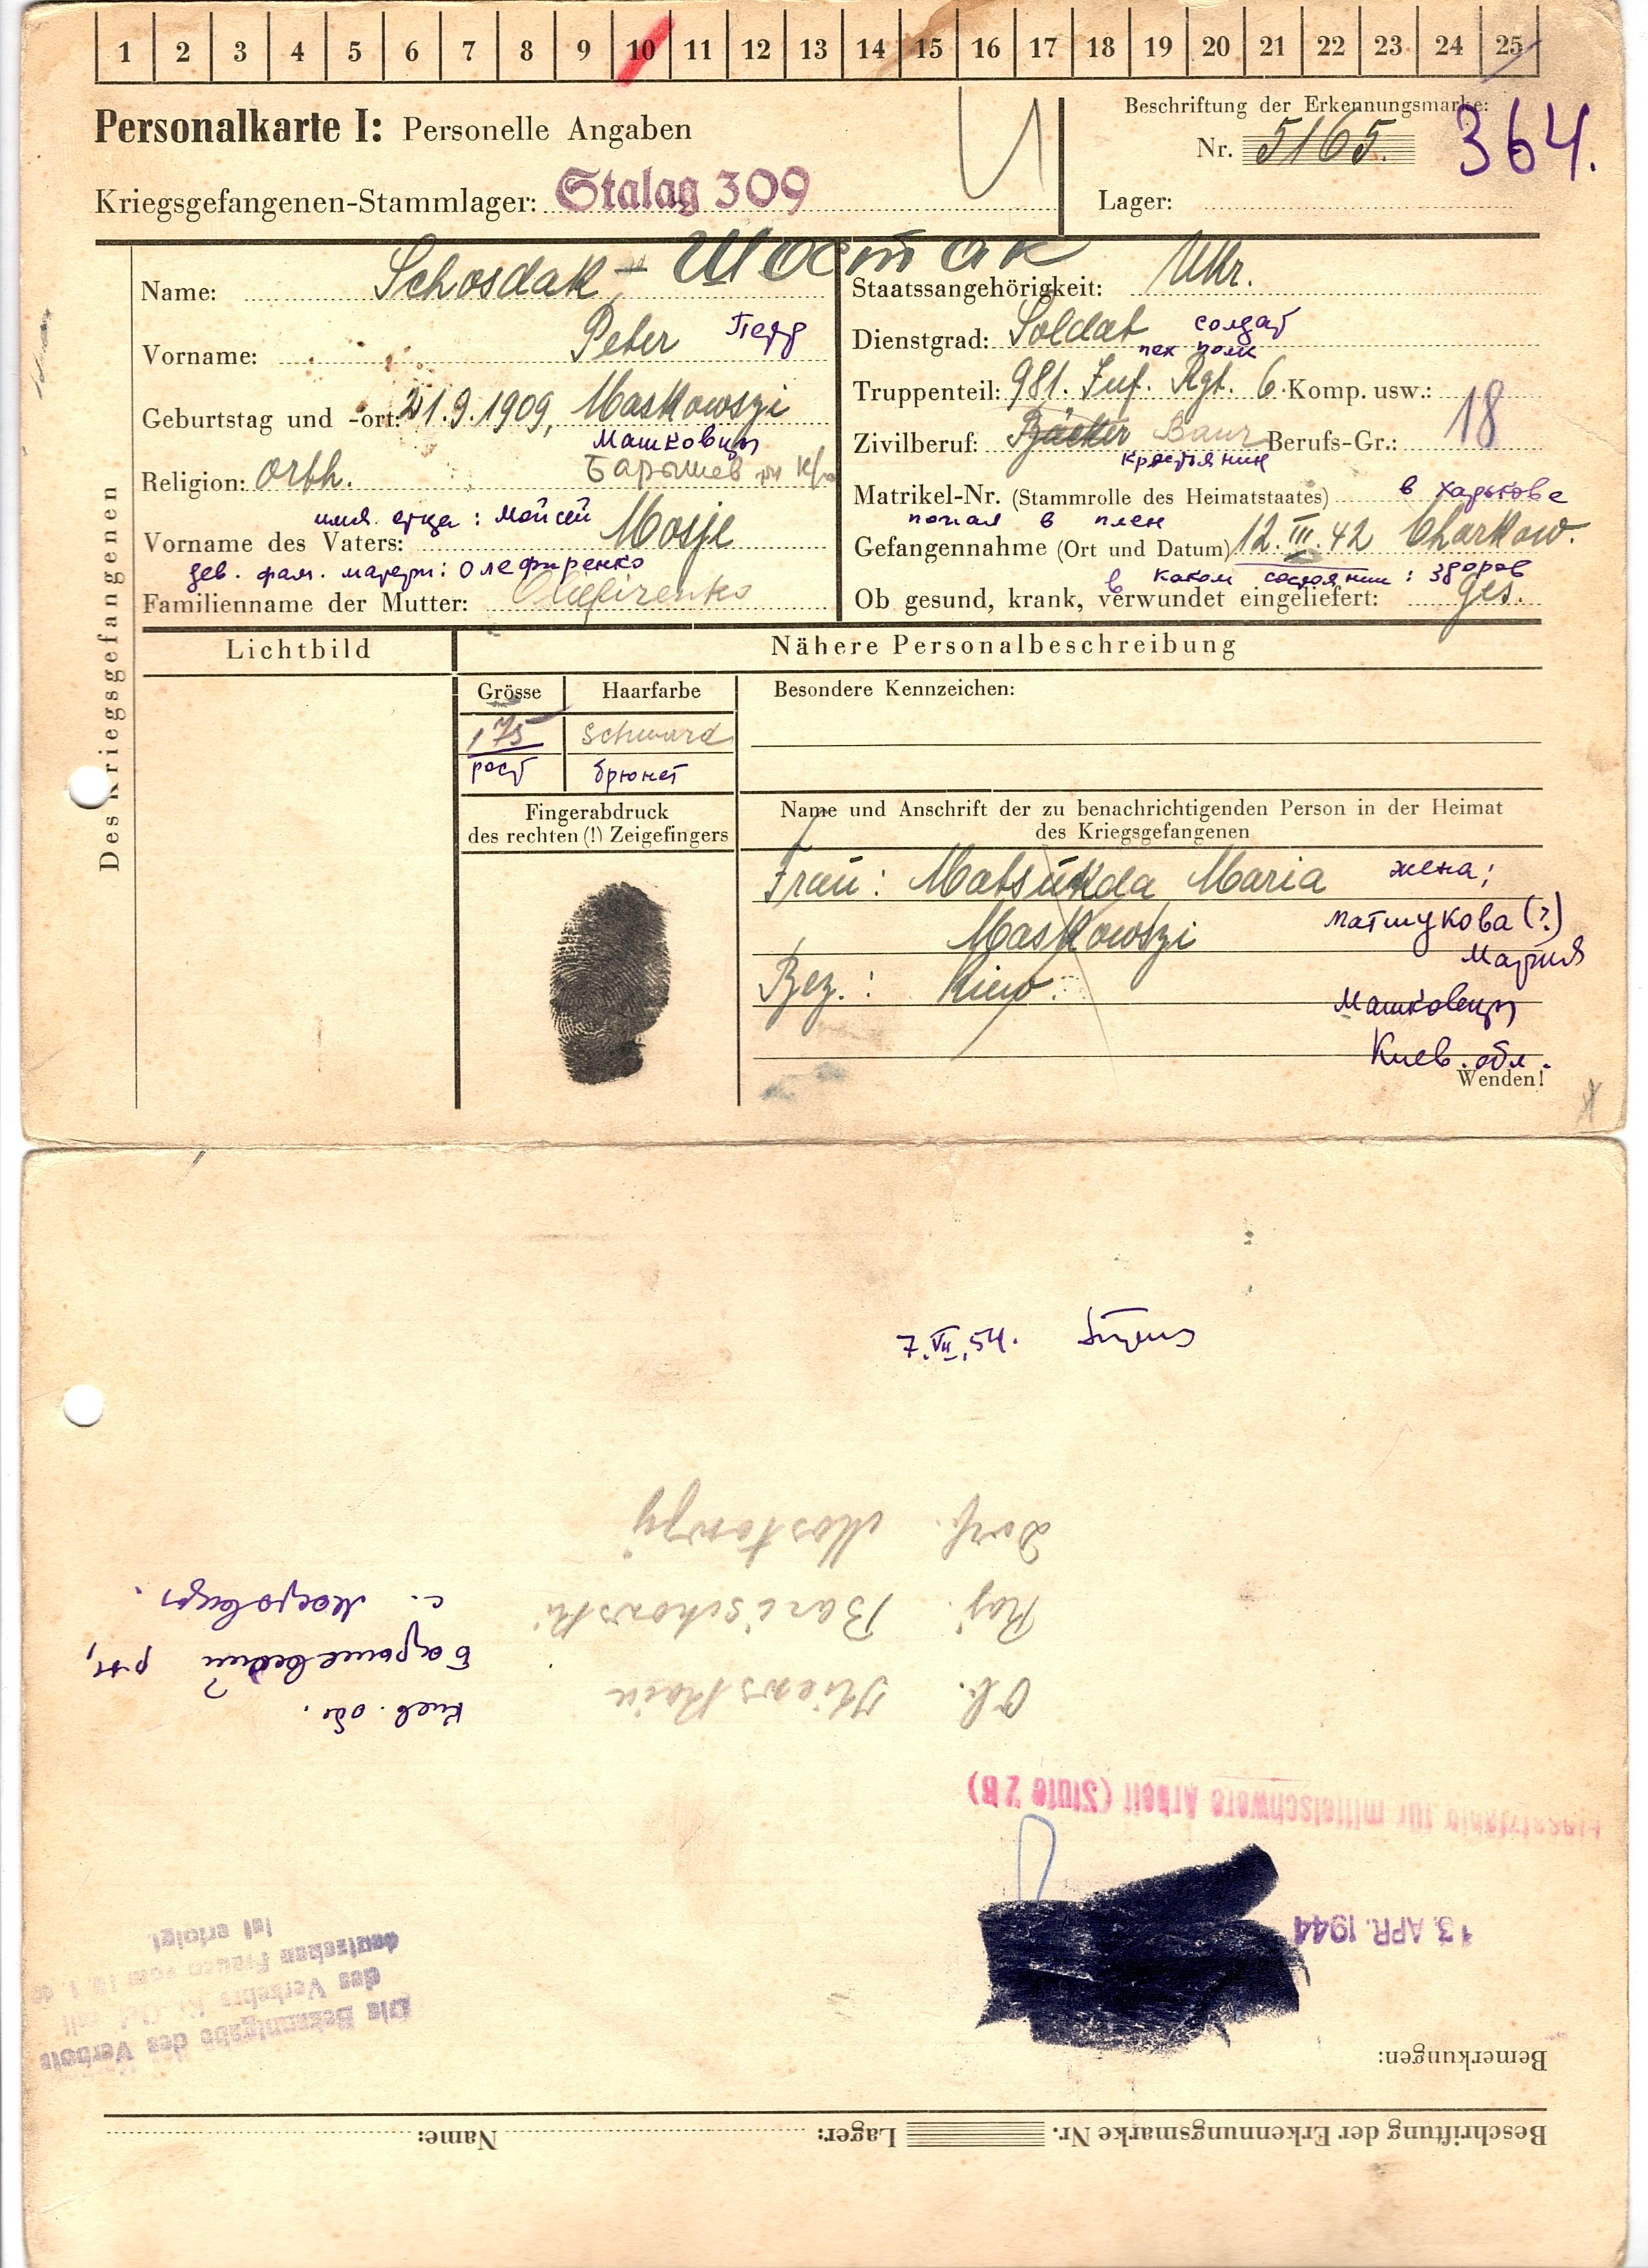 1 2 3 4 5 6 7 8 9 10 11 12 13 14 15 16 17 18 19 20 21 22 23 24 25
Personalkarte I: Personelle Angaben
Kriegsgefangenen-Stammlager: Stalag 309
Beschriftung der Erkennungsmarke:
Nr. 5165. 364.
Lager:
Des Kriegsgefangenen
Name: Schosdak - Шостак
Vorname: Peter Петр
Geburtstag und -ort: 21.9.1909, Maskowszi
Машковцы
Religion: orth. Барышев
имя отца: Мойсей
Vorname des Vaters: Mosje
дев. фам. матери: Олефиренко
Familienname der Mutter: Oliefirenko
Staatsangehörigkeit: Ukr.
Dienstgrad: Soldat солдат
пех полк
Truppenteil: 981. Inf. Rgt. 6. Komp. usw.: 18
Zivilberuf: Bäcker Baur Berufs-Gr.:
крестьянин
Matrikel-Nr. (Stammrolle des Heimatstaates) в Харькове
попал в плен
Gefangennahme (Ort und Datum) 12.III.42 Charkow.
в каком состоянии: здоров
Ob gesund, krank, verwundet eingeliefert: ges.
Lichtbild
Nähere Personalbeschreibung
Grösse Haarfarbe Besondere Kennzeichen:
175 schward
рост брюнет
Fingerabdruck
des rechten (!) Zeigefingers
Name und Anschrift der zu benachrichtigenden Person in der Heimat
des Kriegsgefangenen
Frau: Matsukda Maria жена;
Maskowszi матшукова (?)
Мария
Bez.: Kiew.
Машковцы
Киев. обл.
Wenden!
Beschriftung der Erkennungsmarke Nr. Lager: Name:
Bemerkungen:
Die Bekanntgabe des Verbots
des Verkehrs
deutschen Frauen vom
ist erfolgt.
13. APR. 1944
Einsatzfähig für mittelschwere Arbeit (Stufe 2B)
Ob. Kiewskaia
Киев. обл.
Raj. Barischowski
Барышевский р-н,
?
Dorf. Mostowzi
с.
7.VII.54.